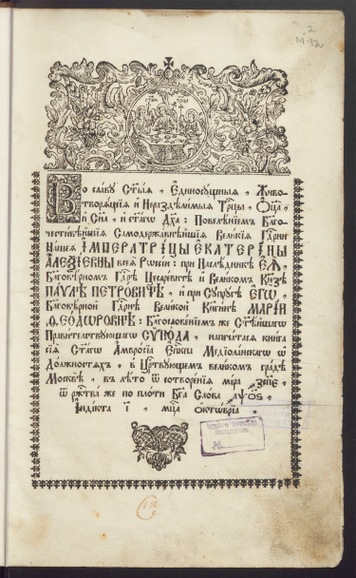 2
М92
Во славу Ст҃ыѧ, Єдиносущныѧ, Живо-
творѧщіѧ и Нераздѣлимыѧ Трⷪ҇цы, Ѻц҃а,
и Сн҃а, и ст҃агѡ Дх҃а: Повелѣніемъ Благо-
честивѣйшіѧ Самодержавнѣйшіѧ Великіѧ Гдⷭ҇рни
нашеѧ ІМПЕРАТРІЦЫ ЕКАТЕРІНЫ
АЛЕѮІЕВНЫ всеѧ Рѡссіи: при Наслѣдникѣ ЕѦ,
Благовѣрномъ Гдⷭ҇рѣ Цесаревичѣ и Великомъ Кнѧзѣ
ПАѴЛѢ ПЕТРОВИЧѢ, и при Супругѣ ЕГѠ,
Благовѣрной Гдⷭ҇рнѣ Великой Кнѧгинѣ МАРІИ
ѲЕОДѠРОВНѢ: Благословеніемъ же Ст҃ѣйшагѡ
Правительствующагѡ СѴНОДА, напечатасѧ книга
сіѧ Ст҃агѡ Амвросіа Епⷭ҇кпа Медіоланскагѡ ѡ
Должностехъ, в Црⷭ҇твующемъ великомъ градѣ
Москвѣ, въ лѣто ѿ сотворенїѧ міра ҂зспе,
ѿ рждⷭ҇тва же по плоти Бг҃а Слова ҂аѱоѕ,
Індікта і, мцⷭ҇а октѡвріа